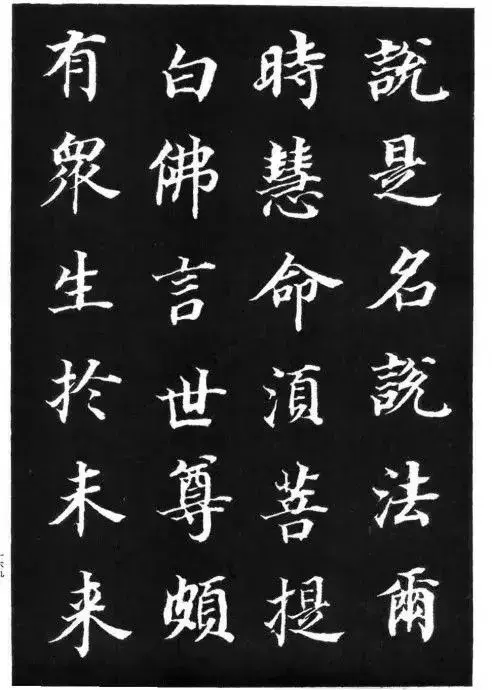 說是名說法爾
時慧命須菩提
白佛言世尊頗
有眾生於未来
一六九